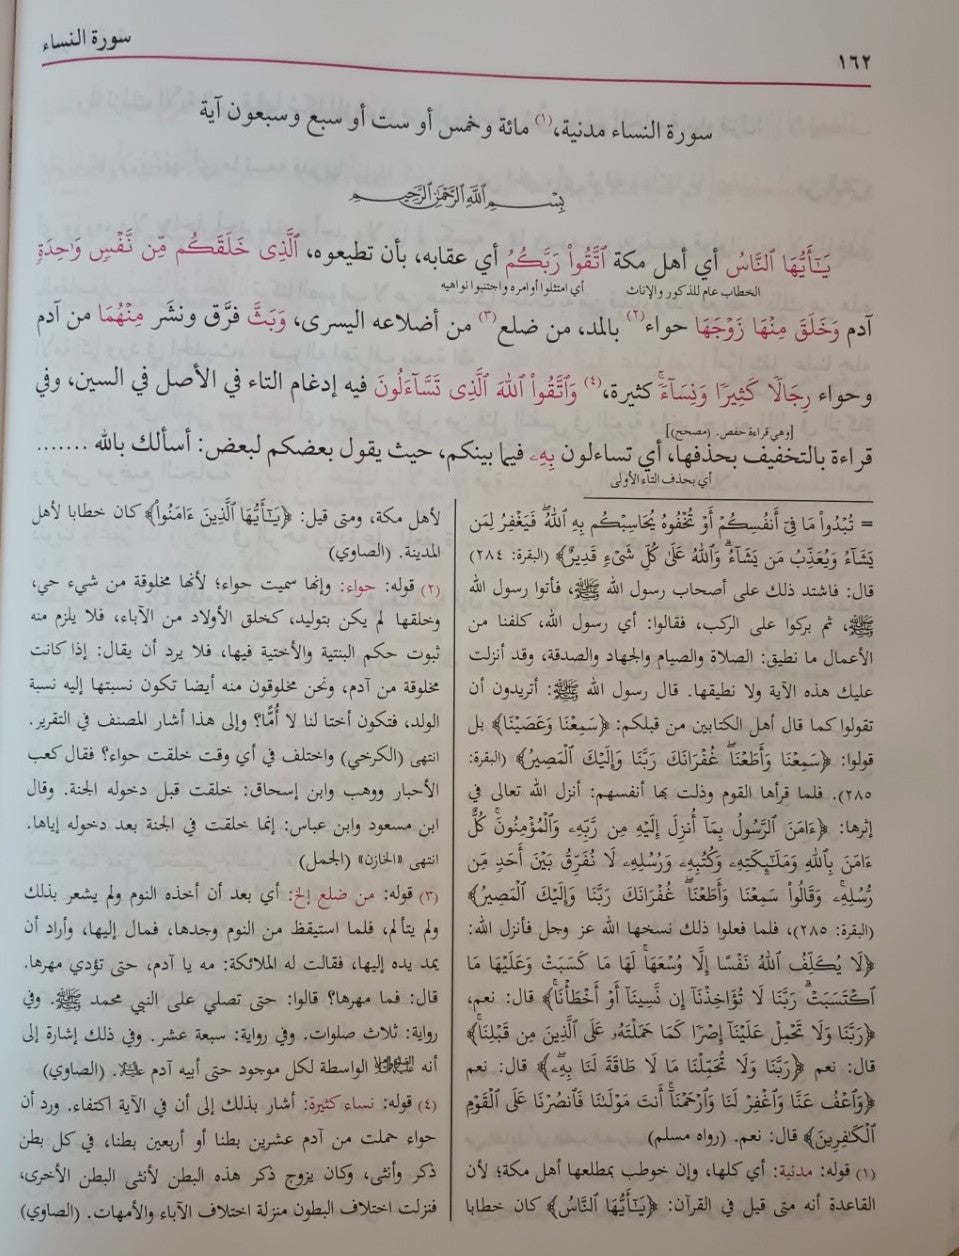 ١٦٢
سورة النساء
سورة النساء مدنية،(١) مائة وخمس أو ست أو سبع وسبعون آية
بِسْمِ ٱللَّهِ ٱلرَّحْمَٰنِ ٱلرَّحِيمِ
يَـٰٓأَيُّهَا ٱلنَّاسُ أي أهل مكة ٱتَّقُوا۟ رَبَّكُمُ أي عقابه، بأن تطيعوه، ٱلَّذِى خَلَقَكُم مِّن نَّفْسٍ وَٰحِدَةٍ
الخطاب عام للذكور والإناث
أي امتثلوا أوامره واجتنبوا نواهيه
آدم وَخَلَقَ مِنْهَا زَوْجَهَا حواء(٢) بالمد، من ضلع(٣) من أضلاعه اليسرى، وَبَثَّ فرَّق ونشَر مِنْهُمَا من آدم
وحواء رِجَالًا كَثِيرًا وَنِسَآءً كثيرة،(٤) وَٱتَّقُوا۟ ٱللَّهَ ٱلَّذِى تَسَّآءَلُونَ فيه إدغام التاء في الأصل في السين، وفي
[وهي قراءة حفص. (مصحح)]
قراءة بالتخفيف بحذفها، أي تساءلون بِهِۦ فيما بينكم، حيث يقول بعضكم لبعض: أسألك بالله .......
أي بحذف التاء الأولى
= تُبْدُوا۟ مَا فِىٓ أَنفُسِكُمْ أَوْ تُخْفُوهُ يُحَاسِبْكُم بِهِ ٱللَّهُ ۖ فَيَغْفِرُ لِمَن
يَشَآءُ وَيُعَذِّبُ مَن يَشَآءُ ۗ وَٱللَّهُ عَلَىٰ كُلِّ شَىْءٍ قَدِيرٌ﴾ (البقرة: ٢٨٤)
قال: فاشتد ذلك على أصحاب رسول الله ﷺ، فأتوا رسول الله
ﷺ، ثم بركوا على الركب، فقالوا: أي رسول الله، كلفنا من
الأعمال ما نطيق: الصلاة والصيام والجهاد والصدقة، وقد أنزلت
عليك هذه الآية ولا نطيقها. قال رسول الله ﷺ: أتريدون أن
تقولوا كما قال أهل الكتابين من قبلكم: ﴿سَمِعْنَا وَعَصَيْنَا﴾ بل
قولوا: ﴿سَمِعْنَا وَأَطَعْنَا ۖ غُفْرَانَكَ رَبَّنَا وَإِلَيْكَ ٱلْمَصِيرُ﴾ (البقرة:
٢٨٥). فلما قرأها القوم وذلت بها أنفسهم: أنزل الله تعالى في
إثرها: ﴿ءَامَنَ ٱلرَّسُولُ بِمَآ أُنزِلَ إِلَيْهِ مِن رَّبِّهِۦ وَٱلْمُؤْمِنُونَ ۚ كُلٌّ
ءَامَنَ بِٱللَّهِ وَمَلَـٰٓئِكَتِهِۦ وَكُتُبِهِۦ وَرُسُلِهِۦ لَا نُفَرِّقُ بَيْنَ أَحَدٍ مِّن
رُّسُلِهِۦ ۚ وَقَالُوا۟ سَمِعْنَا وَأَطَعْنَا ۖ غُفْرَانَكَ رَبَّنَا وَإِلَيْكَ ٱلْمَصِيرُ﴾
(البقرة: ٢٨٥)، فلما فعلوا ذلك نسخها الله عز وجل فأنزل الله:
﴿لَا يُكَلِّفُ ٱللَّهُ نَفْسًا إِلَّا وُسْعَهَا ۚ لَهَا مَا كَسَبَتْ وَعَلَيْهَا مَا
ٱكْتَسَبَتْ ۗ رَبَّنَا لَا تُؤَاخِذْنَآ إِن نَّسِينَآ أَوْ أَخْطَأْنَا﴾ قال: نعم،
﴿رَبَّنَا وَلَا تَحْمِلْ عَلَيْنَآ إِصْرًا كَمَا حَمَلْتَهُۥ عَلَى ٱلَّذِينَ مِن قَبْلِنَا﴾
قال: نعم ﴿رَبَّنَا وَلَا تُحَمِّلْنَا مَا لَا طَاقَةَ لَنَا بِهِۦ﴾ قال: نعم
﴿وَٱعْفُ عَنَّا وَٱغْفِرْ لَنَا وَٱرْحَمْنَآ ۚ أَنتَ مَوْلَىٰنَا فَٱنصُرْنَا عَلَى ٱلْقَوْمِ
ٱلْكَـٰفِرِينَ﴾ قال: نعم. (رواه مسلم)
(١) قوله: مدنية: أي كلها، وإن خوطب بمطلعها أهل مكة؛ لأن
القاعدة أنه متى قيل في القرآن: ﴿يَـٰٓأَيُّهَا ٱلنَّاسُ﴾ كان خطابا
لأهل مكة، ومتى قيل: ﴿يَـٰٓأَيُّهَا ٱلَّذِينَ ءَامَنُوا۟﴾ كان خطابا لأهل
المدينة. (الصاوي)
(٢) قوله: حواء: وإنها سميت حواء؛ لأنها مخلوقة من شيء حي،
وخلقها لم يكن بتوليد، كخلق الأولاد من الآباء، فلا يلزم منه
ثبوت حكم البنتية والأختية فيها، فلا يرد أن يقال: إذا كانت
مخلوقة من آدم، ونحن مخلوقون منه أيضا تكون نسبتها إليه نسبة
الولد، فتكون أختا لنا لا أُمًّا؟ وإلى هذا أشار المصنف في التقرير.
انتهى (الكرخي) واختلف في أي وقت خلقت حواء؟ فقال كعب
الأحبار ووهب وابن إسحاق: خلقت قبل دخوله الجنة. وقال
ابن مسعود وابن عباس: إنما خلقت في الجنة بعد دخوله إياها.
انتهى «الخازن» (الجمل)
(٣) قوله: من ضلع إلخ: أي بعد أن أخذه النوم ولم يشعر بذلك
ولم يتألم، فلما استيقظ من النوم وجدها، فمال إليها، وأراد أن
يمد يده إليها، فقالت له الملائكة: مه يا آدم، حتى تؤدي مهرها.
قال: فما مهرها؟ قالوا: حتى تصلي على النبي محمد ﷺ. وفي
رواية: ثلاث صلوات. وفي رواية: سبعة عشر. وفي ذلك إشارة إلى
أنه الواسطة لكل موجود حتى أبيه آدم. (الصاوي)
(٤) قوله: نساء كثيرة: أشار بذلك إلى أن في الآية اكتفاء. ورد أن
حواء حملت من آدم عشرين بطنا أو أربعين بطنا، في كل بطن
ذكر وأنثى، وكان يزوج ذكر هذه البطن لأنثى البطن الأخرى،
فنزلت اختلاف البطون منزلة اختلاف الآباء والأمهات. (الصاوي)